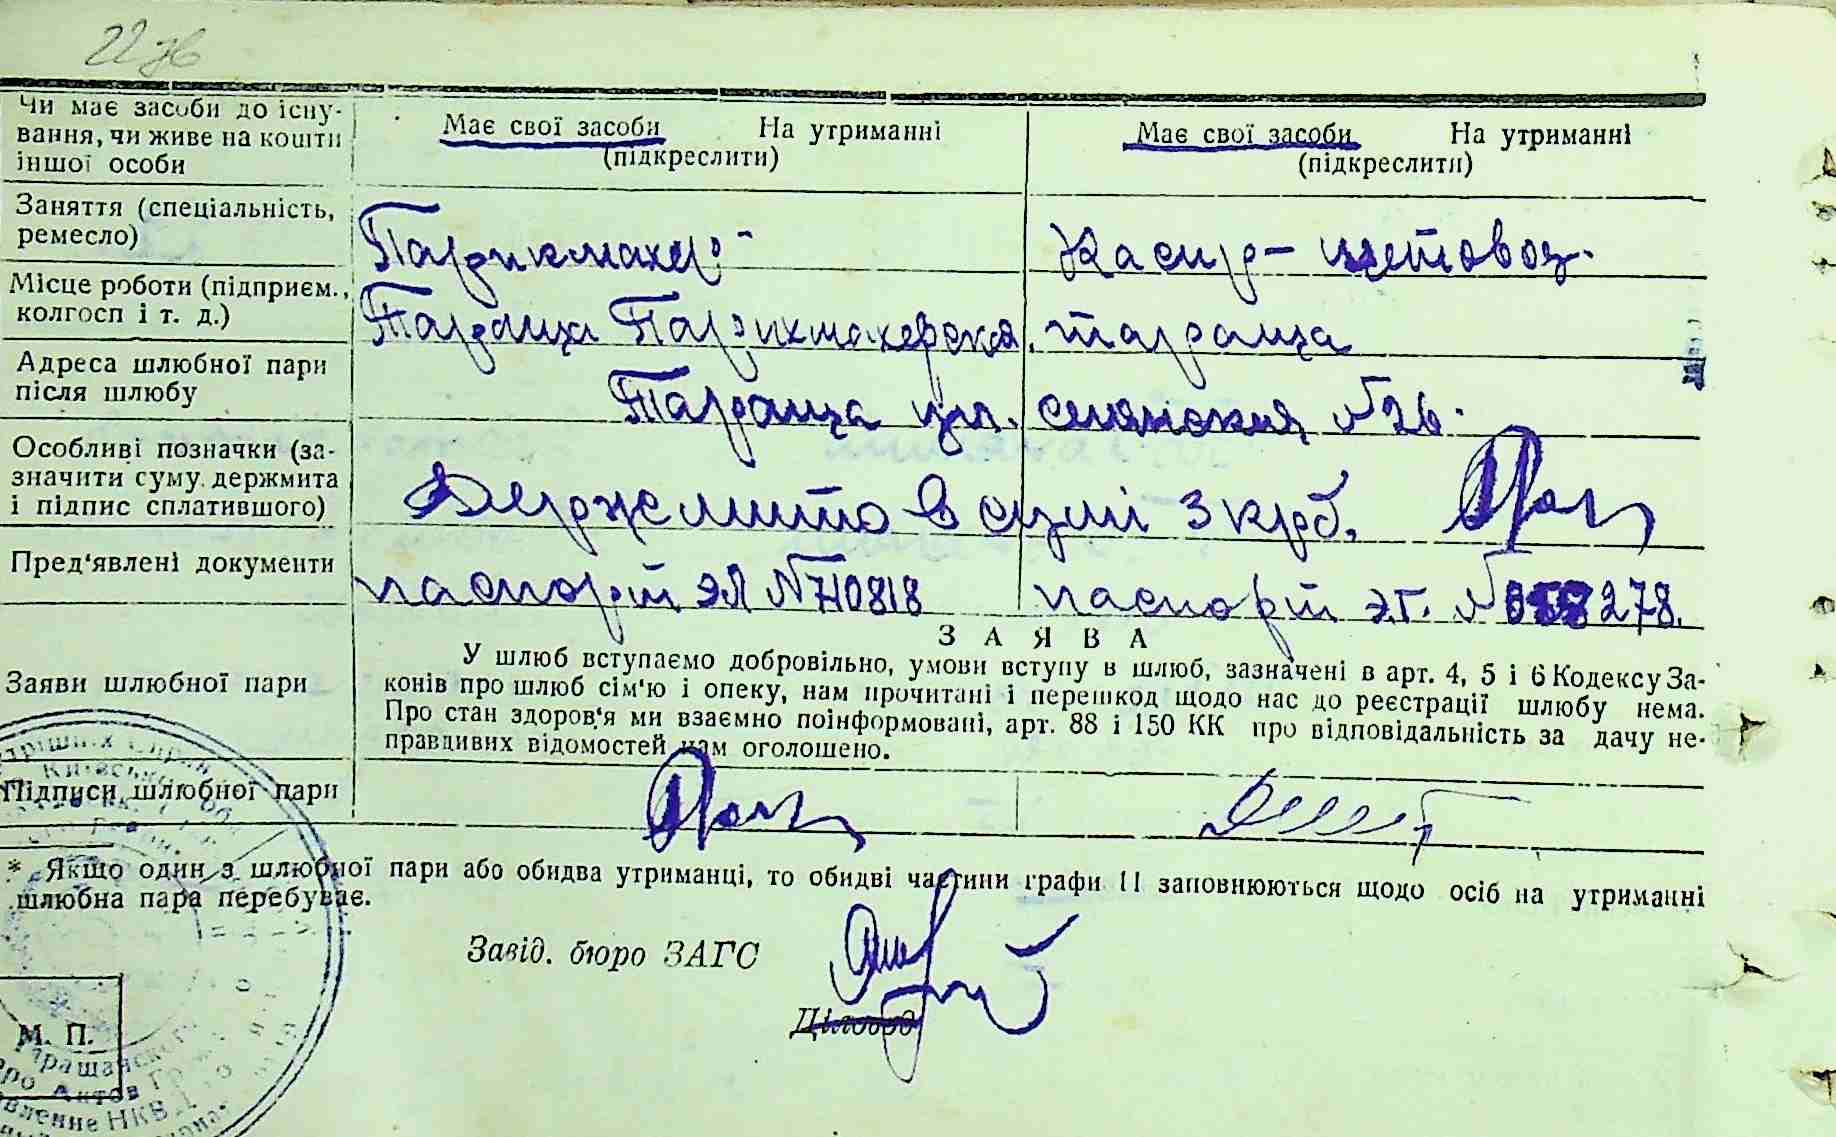 22зв
Чи має засоби до існу-
вання, чи живе на кошти
іншої особи
Має свої засоби На утриманні
(підкреслити)
Має свої засоби На утриманні
(підкреслити)
Заняття (спеціальність,
ремесло)
Парикмахер
Касир-щетовод.
Місце роботи (підприєм.,
колгосп і т. д.)
Тараща Парикмахерская.
Тараща
Адреса шлюбної пари
після шлюбу
Тараща ул. №26.
Особливі позначки (за-
значити суму держмита
і підпис сплатившого)
Держмито в сумі 3 крб.
Пред'явлені документи
паспорт ЭЛ №710818
паспорт ЭГ. № 278.
ЗАЯВА
Заяви шлюбної пари
У шлюб вступаємо добровільно, умови вступу в шлюб, зазначені в арт. 4, 5 і 6 Кодексу За-
конів про шлюб сім'ю і опеку, нам прочитані і перешкод щодо нас до реєстрації шлюбу нема.
Про стан здоров'я ми взаємно поінформовані, арт. 88 і 150 КК про відповідальність за дачу не-
правдивих відомостей нам оголошено.
Підписи шлюбної пари
* Якщо один з шлюбної пари або обидва утриманці, то обидві частини графи 11 заповнюються щодо осіб на утриманні
шлюбна пара перебуває.
Завід. бюро ЗАГС
Діловод
М. П.
Актов
НКВД